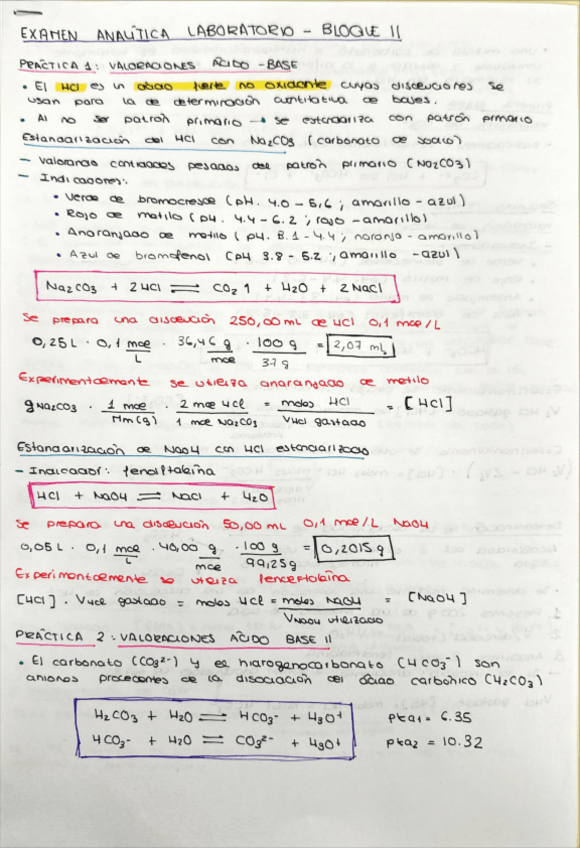 EXAMEN ANALÍTICA LABORATORIO - BLOQUE II
PRÁCTICA 1: VALORACIONES ÁCIDO-BASE
• El HCl es un ácido fuerte no oxidante cuyas disoluciones se
usan para la de determinación cuantitativa de bases.
• Al no ser patrón primario → se estandariza con patrón primario
Estandarización del HCl con Na2CO3 (carbonato de sodio)
- Valorando cantidades pesadas del patrón primario (Na2CO3)
- Indicadores:
• Verde de bromocresol (pH. 4.0 - 5,6; amarillo - azul)
• Rojo de metilo (pH. 4.4 - 6.2; rojo - amarillo)
• Anaranjado de metilo (pH. 3.1 - 4.4; naranja - amarillo)
• Azul de bromofenol (pH 3.8 - 5.2; amarillo - azul)
Na2CO3 + 2HCl ⇌ CO2↑ + H2O + 2NaCl
Se prepara una disolución 250,00 mL de HCl 0,1 mol/L
0,25 L · 0,1 mol/L · 36,46 g/mol · 100 g/37 g = 2,07 mL
Experimentalmente se utiliza anaranjado de metilo
gNa2CO3 · 1 mol/Mm(g) · 2 mol HCl/1 mol Na2CO3 = moles HCl/VHCl gastado = [HCl]
Estandarización de NaOH con HCl estandarizado
- Indicador: fenolftaleína
HCl + NaOH ⇌ NaCl + H2O
Se prepara una disolución 50,00 mL 0,1 mol/L NaOH
0,05 L · 0,1 mol/L · 40,00 g/mol · 100 g/99,25g = 0,2015 g
Experimentalmente se utiliza fenolftaleína
[HCl] · VHCl gastado = moles HCl = moles NaOH/VNaOH utilizado = [NaOH]
PRÁCTICA 2: VALORACIONES ÁCIDO BASE II
• El carbonato (CO3²⁻) y el hidrogenocarbonato (HCO3⁻) son
aniones procedentes de la disociación del ácido carbónico (H2CO3)
H2CO3 + H2O ⇌ HCO3⁻ + H3O⁺ pka1 = 6.35
HCO3⁻ + H2O ⇌ CO3²⁻ + H3O⁺ pka2 = 10.32